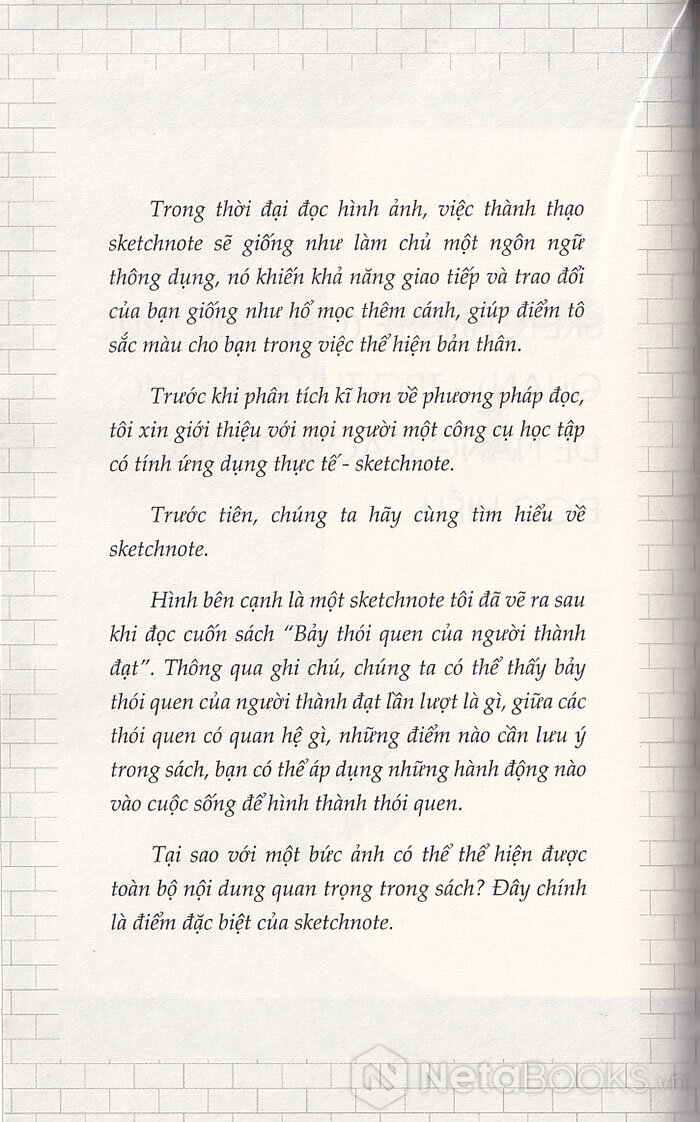 Trong thời đại đọc hình ảnh, việc thành thạo
sketchnote sẽ giống như làm chủ một ngôn ngữ
thông dụng, nó khiến khả năng giao tiếp và trao đổi
của bạn giống như hổ mọc thêm cánh, giúp điểm tô
sắc màu cho bạn trong việc thể hiện bản thân.
Trước khi phân tích kĩ hơn về phương pháp đọc,
tôi xin giới thiệu với mọi người một công cụ học tập
có tính ứng dụng thực tế - sketchnote.
Trước tiên, chúng ta hãy cùng tìm hiểu về
sketchnote.
Hình bên cạnh là một sketchnote tôi đã vẽ ra sau
khi đọc cuốn sách “Bảy thói quen của người thành
đạt”. Thông qua ghi chú, chúng ta có thể thấy bảy
thói quen của người thành đạt lần lượt là gì, giữa các
thói quen có quan hệ gì, những điểm nào cần lưu ý
trong sách, bạn có thể áp dụng những hành động nào
vào cuộc sống để hình thành thói quen.
Tại sao với một bức ảnh có thể thể hiện được
toàn bộ nội dung quan trọng trong sách? Đây chính
là điểm đặc biệt của sketchnote.
NetaBooks.vn